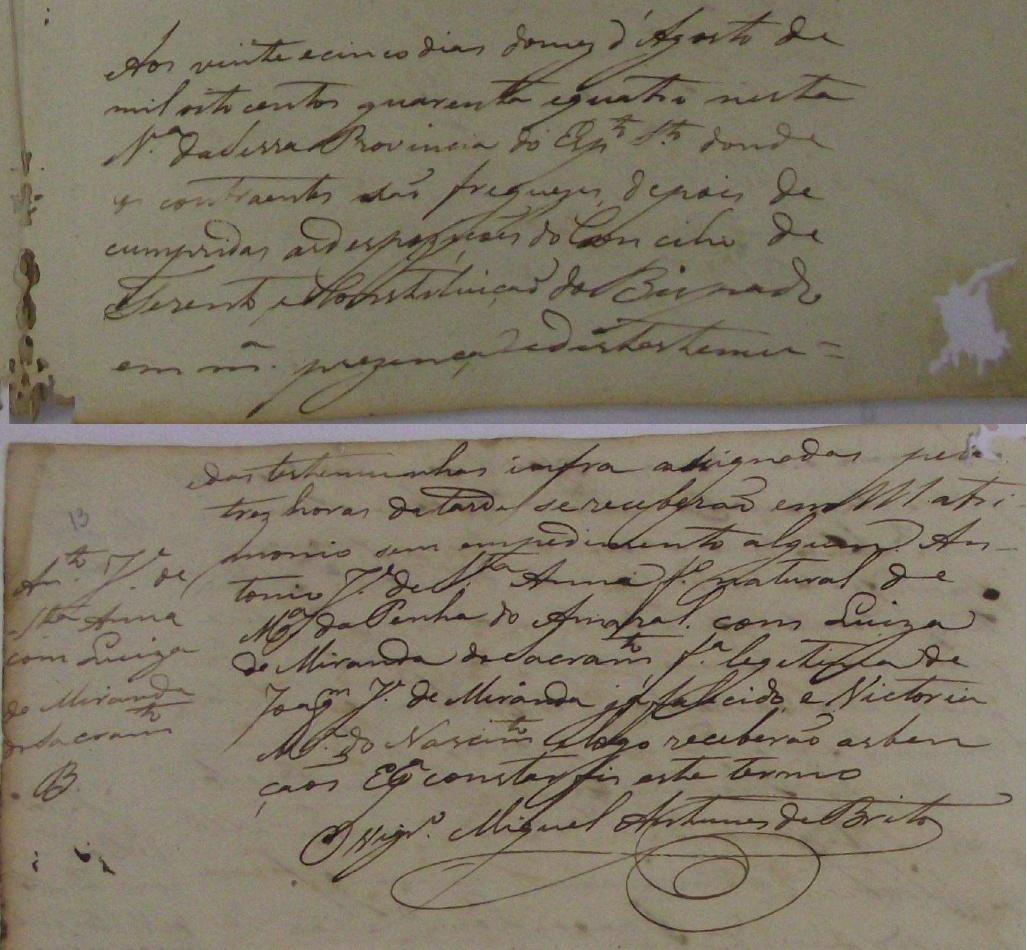 Aos vinte e cinco dias do mez d'Agosto de
mil oito centos quarenta e quatro nesta
V.ª da Serra Provincia do Esp.to S.to donde
os contraentes são freguezes, depois de
cumpridas as desposições do Concilio de
Terento, e Constituição do Bispado
em m.ª prezença, e das testemu=
das testemunhas infra asignadas pelas
trez horas da tarde se receberão em Matri-
monio sem empedimento algum An-
tonio J.e de S.ta Anna f.o natural de
M.ª da Penha do Amaral. com Luiza
de Miranda do Sacram.to f.ª legitima de
Joaq.m J.e de Miranda já falecido, e Victoria
M.ª do Nascim.to e logo receberão as ben
çaos E p.ª constar fis este termo
O Vigr.o Miguel Antunes de Brito
13
An.to J.e de
S.ta Anna
com Luiza
de Miranda
do Sacram.to
B.